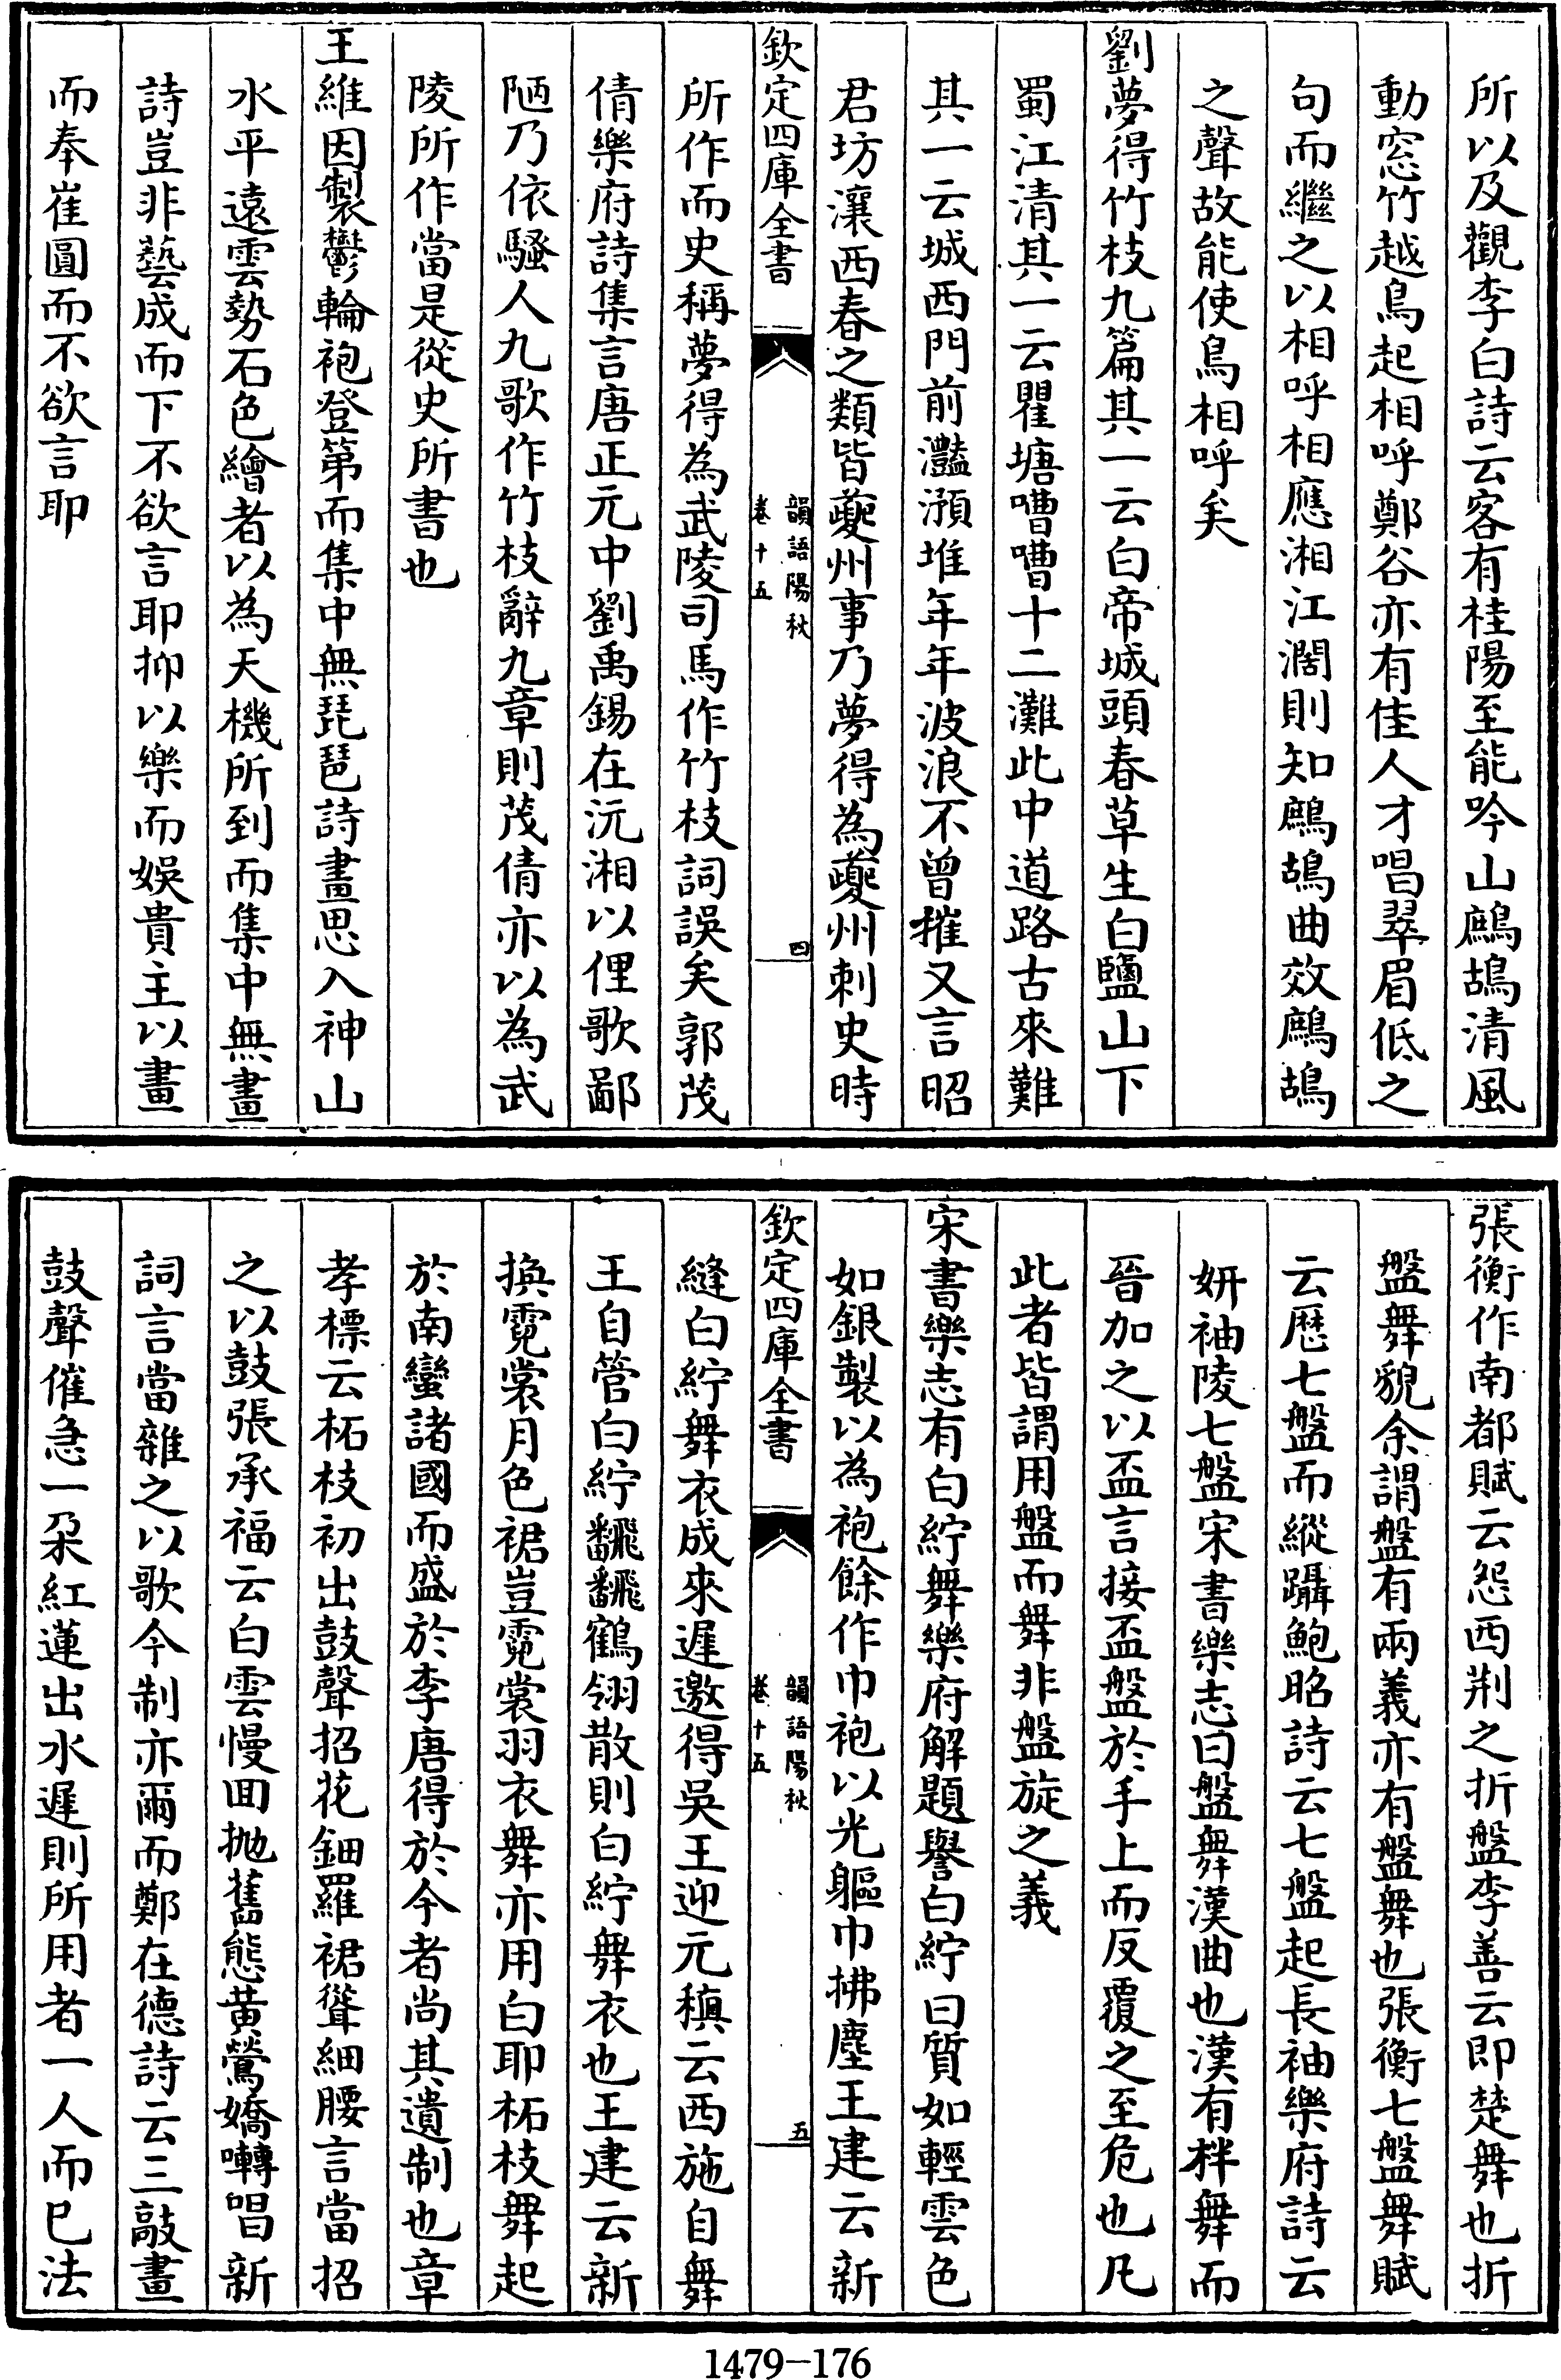 所以及觀李白詩云客有桂陽至能吟山鷓鴣清風
動窓竹越鳥起相呼鄭谷亦有佳人才唱翠眉低之
句而繼之以相呼相應湘江濶則知鷓鴣曲效鷓鴣
之聲故能使鳥相呼矣
劉夢得竹枝九篇其一云白帝城頭春草生白鹽山下
蜀江清其一云瞿塘嘈嘈十二灘此中道路古來難
其一云城西門前灩澦堆年年波浪不曾摧又言昭
君坊瀼西春之類皆夔州事乃夢得為夔州刺史時
欽定四庫全書
韻語陽秋
卷十五
四
所作而史稱夢得為武陵司馬作竹枝詞誤矣郭茂
倩樂府詩集言唐正元中劉禹錫在沅湘以俚歌鄙
陋乃依騷人九歌作竹枝辭九章則茂倩亦以為武
陵所作當是從史所書也
王維因製鬱輪袍登第而集中無琵琶詩畫思入神山
水平遠雲勢石色繪者以為天機所到而集中無畫
詩豈非藝成而下不欲言耶抑以樂而娛貴主以畫
而奉崔圓而不欲言耶
張衡作南都賦云怨西荆之折盤李善云即楚舞也折
盤舞貌余謂盤有兩義亦有盤舞也張衡七盤舞賦
云歴七盤而縱躡鮑昭詩云七盤起長袖樂府詩云
妍袖陵七盤宋書樂志曰盤舞漢曲也漢有柈舞而
晉加之以盃言接盃盤於手上而反覆之至危也凡
此者皆謂用盤而舞非盤旋之義
宋書樂志有白紵舞樂府解題譽白紵曰質如輕雲色
如銀製以為袍餘作巾袍以光軀巾拂塵王建云新
欽定四庫全書
韻語陽秋
卷十五
五
縫白紵舞衣成來遲邀得吳王迎元稹云西施自舞
王自管白紵飜飜鶴翎散則白紵舞衣也王建云新
換霓裳月色裙豈霓裳羽衣舞亦用白耶柘枝舞起
於南蠻諸國而盛於李唐得於今者尚其遺制也章
孝標云柘枝初出鼓聲招花鈿羅裙聳細腰言當招
之以鼓張承福云白雲慢囬抛舊態黄鶯嬌囀唱新
詞言當雜之以歌今制亦爾而鄭在德詩云三敲畫
鼓聲催急一朶紅蓮出水遲則所用者一人而已法
1479-176